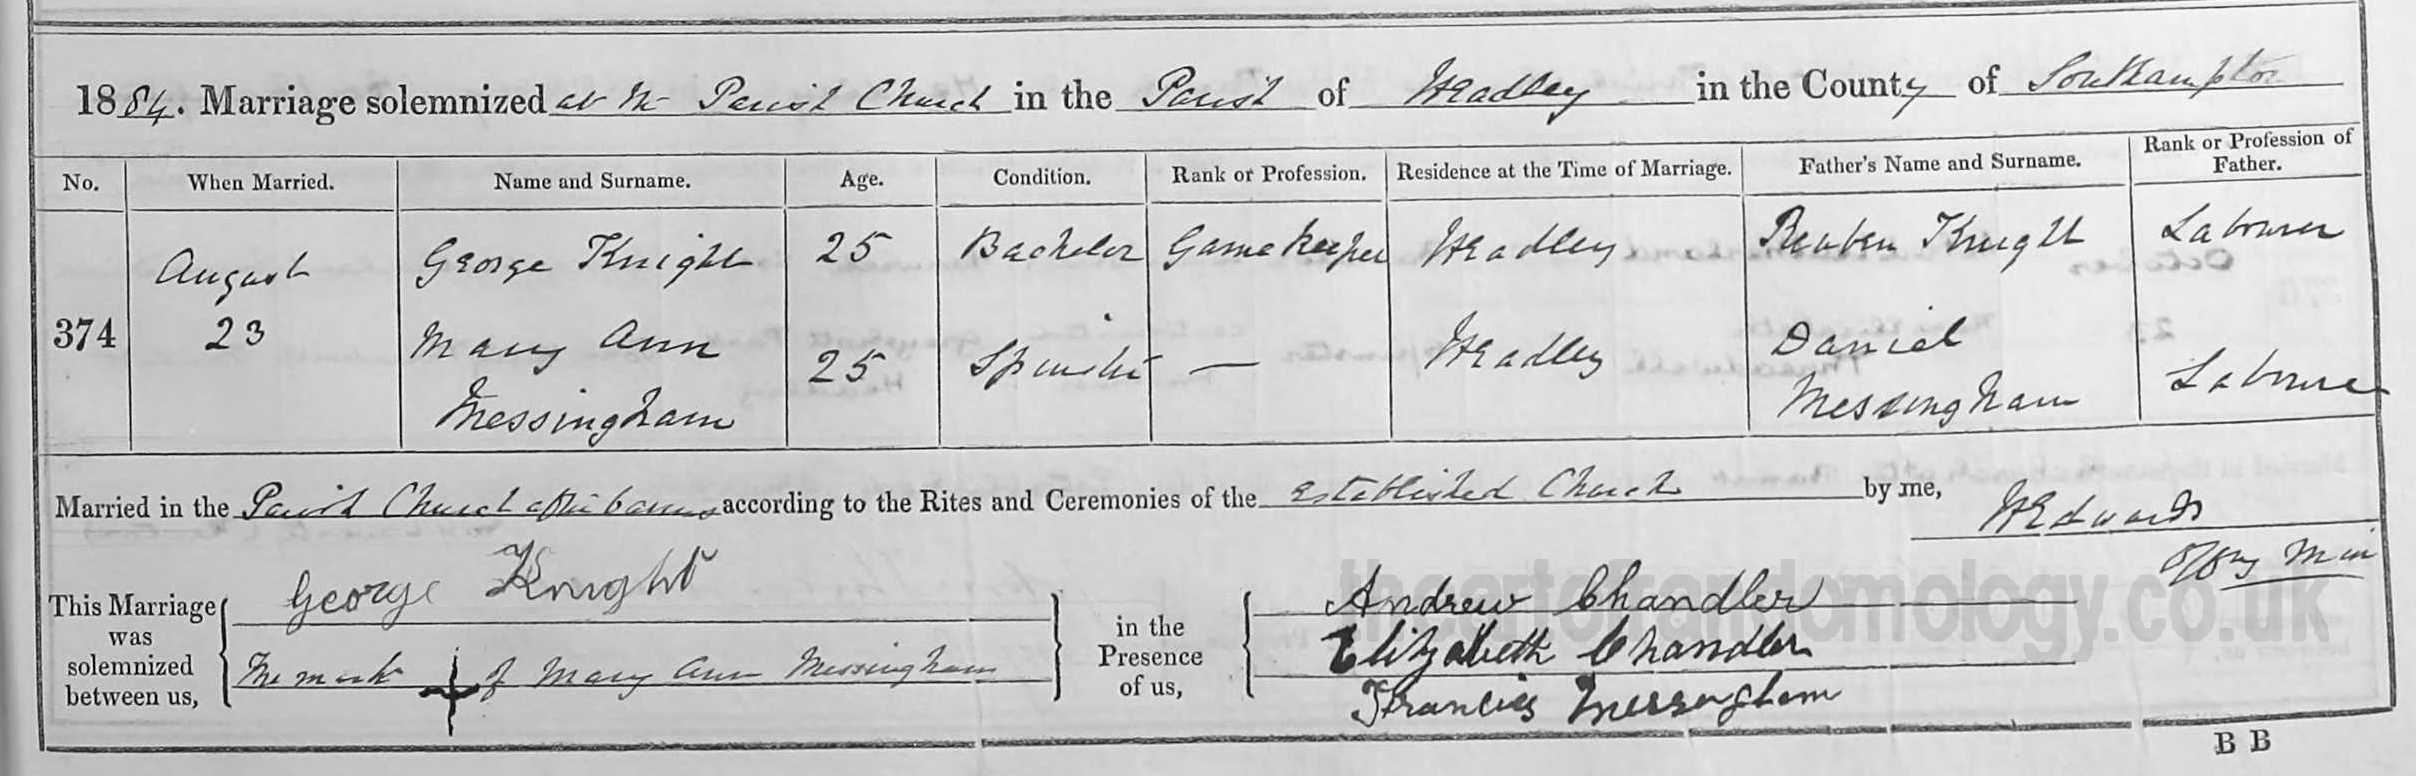 1884. Marriage solemnized at the Parish Church in the Parish of Headley in the County of Southampton
No. When Married. Name and Surname. Age. Condition. Rank or Profession. Residence at the Time of Marriage. Father's Name and Surname. Rank or Profession of Father.
374 August 23 George Knight 25 Bachelor Gamekeeper Headley Reuben Knight Labourer
Mary Ann Messingham 25 Spinster — Headley Daniel Messingham Labourer
Married in the Parish Church after banns according to the Rites and Ceremonies of the Established Church by me, H Edwards
Offg Min
This Marriage was solemnized between us, George Knight
The mark + of Mary Ann Messingham
in the Presence of us, Andrew Chandler
Elizabeth Chandler
Francies Messingham
theartofrandomology.co.uk
B B